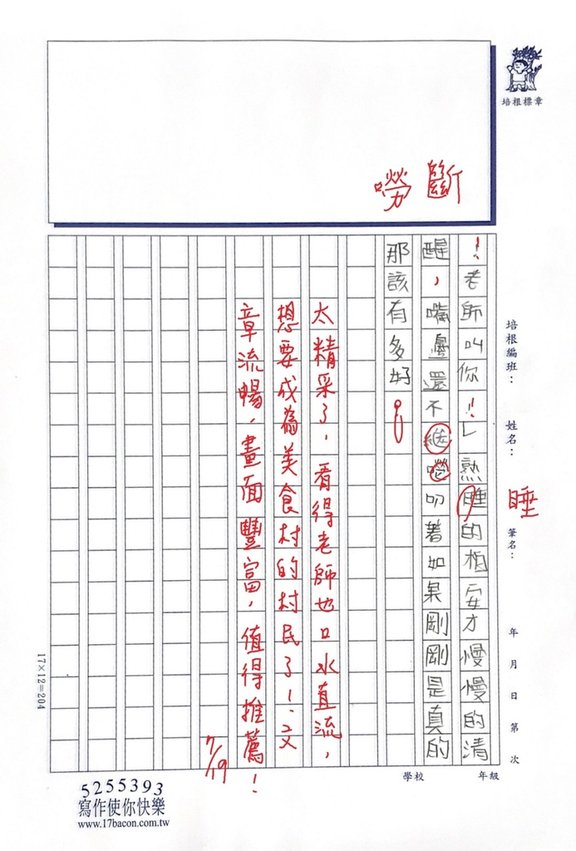 培根標章
嘮斷
！老師叫你！！」熟睡的柏安才慢慢的清
醒，嘴邊還不繼嘮叨著如果剛剛是真的
那該有多好！
睡
太精采了，看得老師也口水直流，
想要成為美食村的村民了！文
章流暢，畫面豐富，值得推薦！
7/19
培根編班：
姓名：
筆名：
年 月 日 第 次
17×12=204
學校 年級
5255393
寫作使你快樂
www.17bacon.com.tw